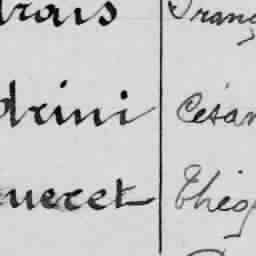 drais Franç
drini César
ueret Théo